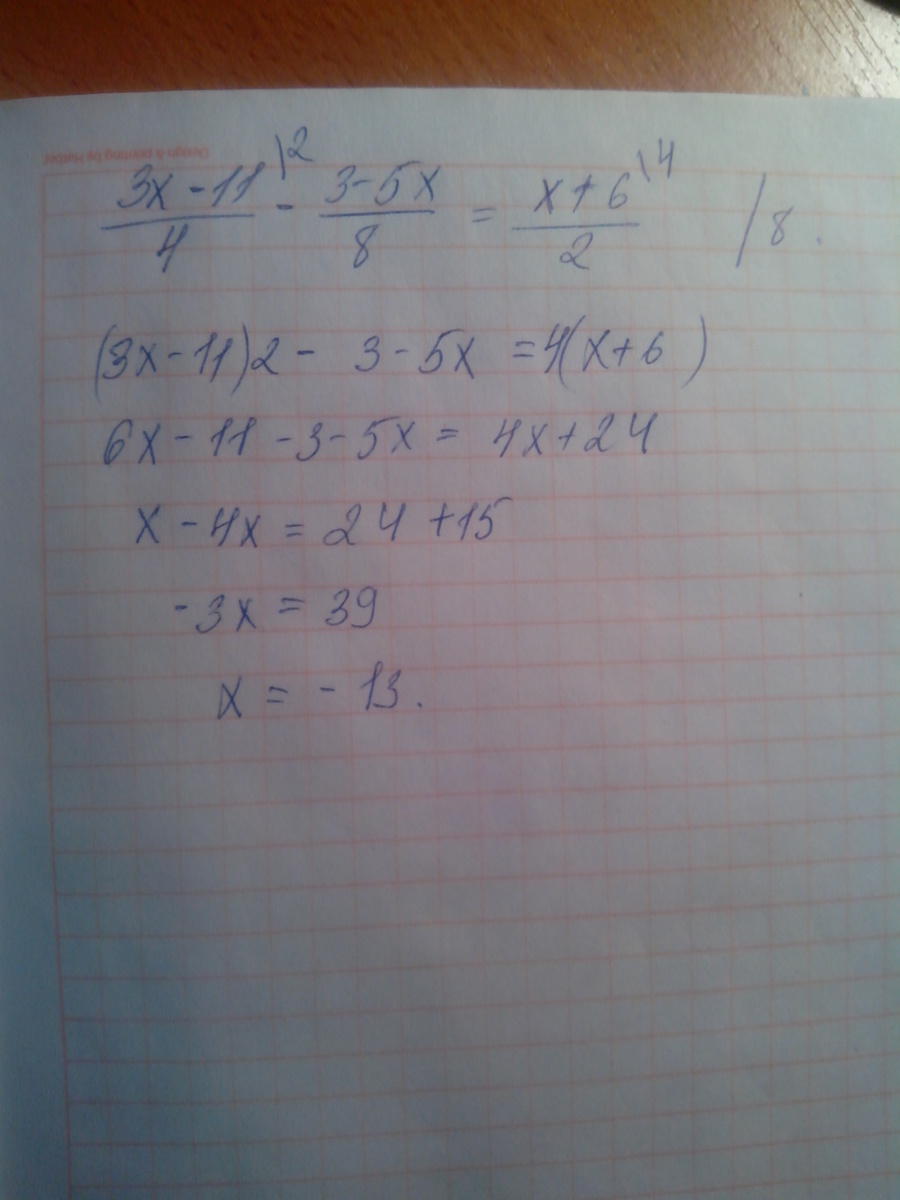 Design & printing by Hatber
(3x - 11)/4 \2 - (3 - 5x)/8 = (x + 6)/2 \4 / 8.
(3x - 11)2 - 3 - 5x = 4(x + 6)
6x - 11 - 3 - 5x = 4x + 24
x - 4x = 24 + 15
-3x = 39
x = - 13.